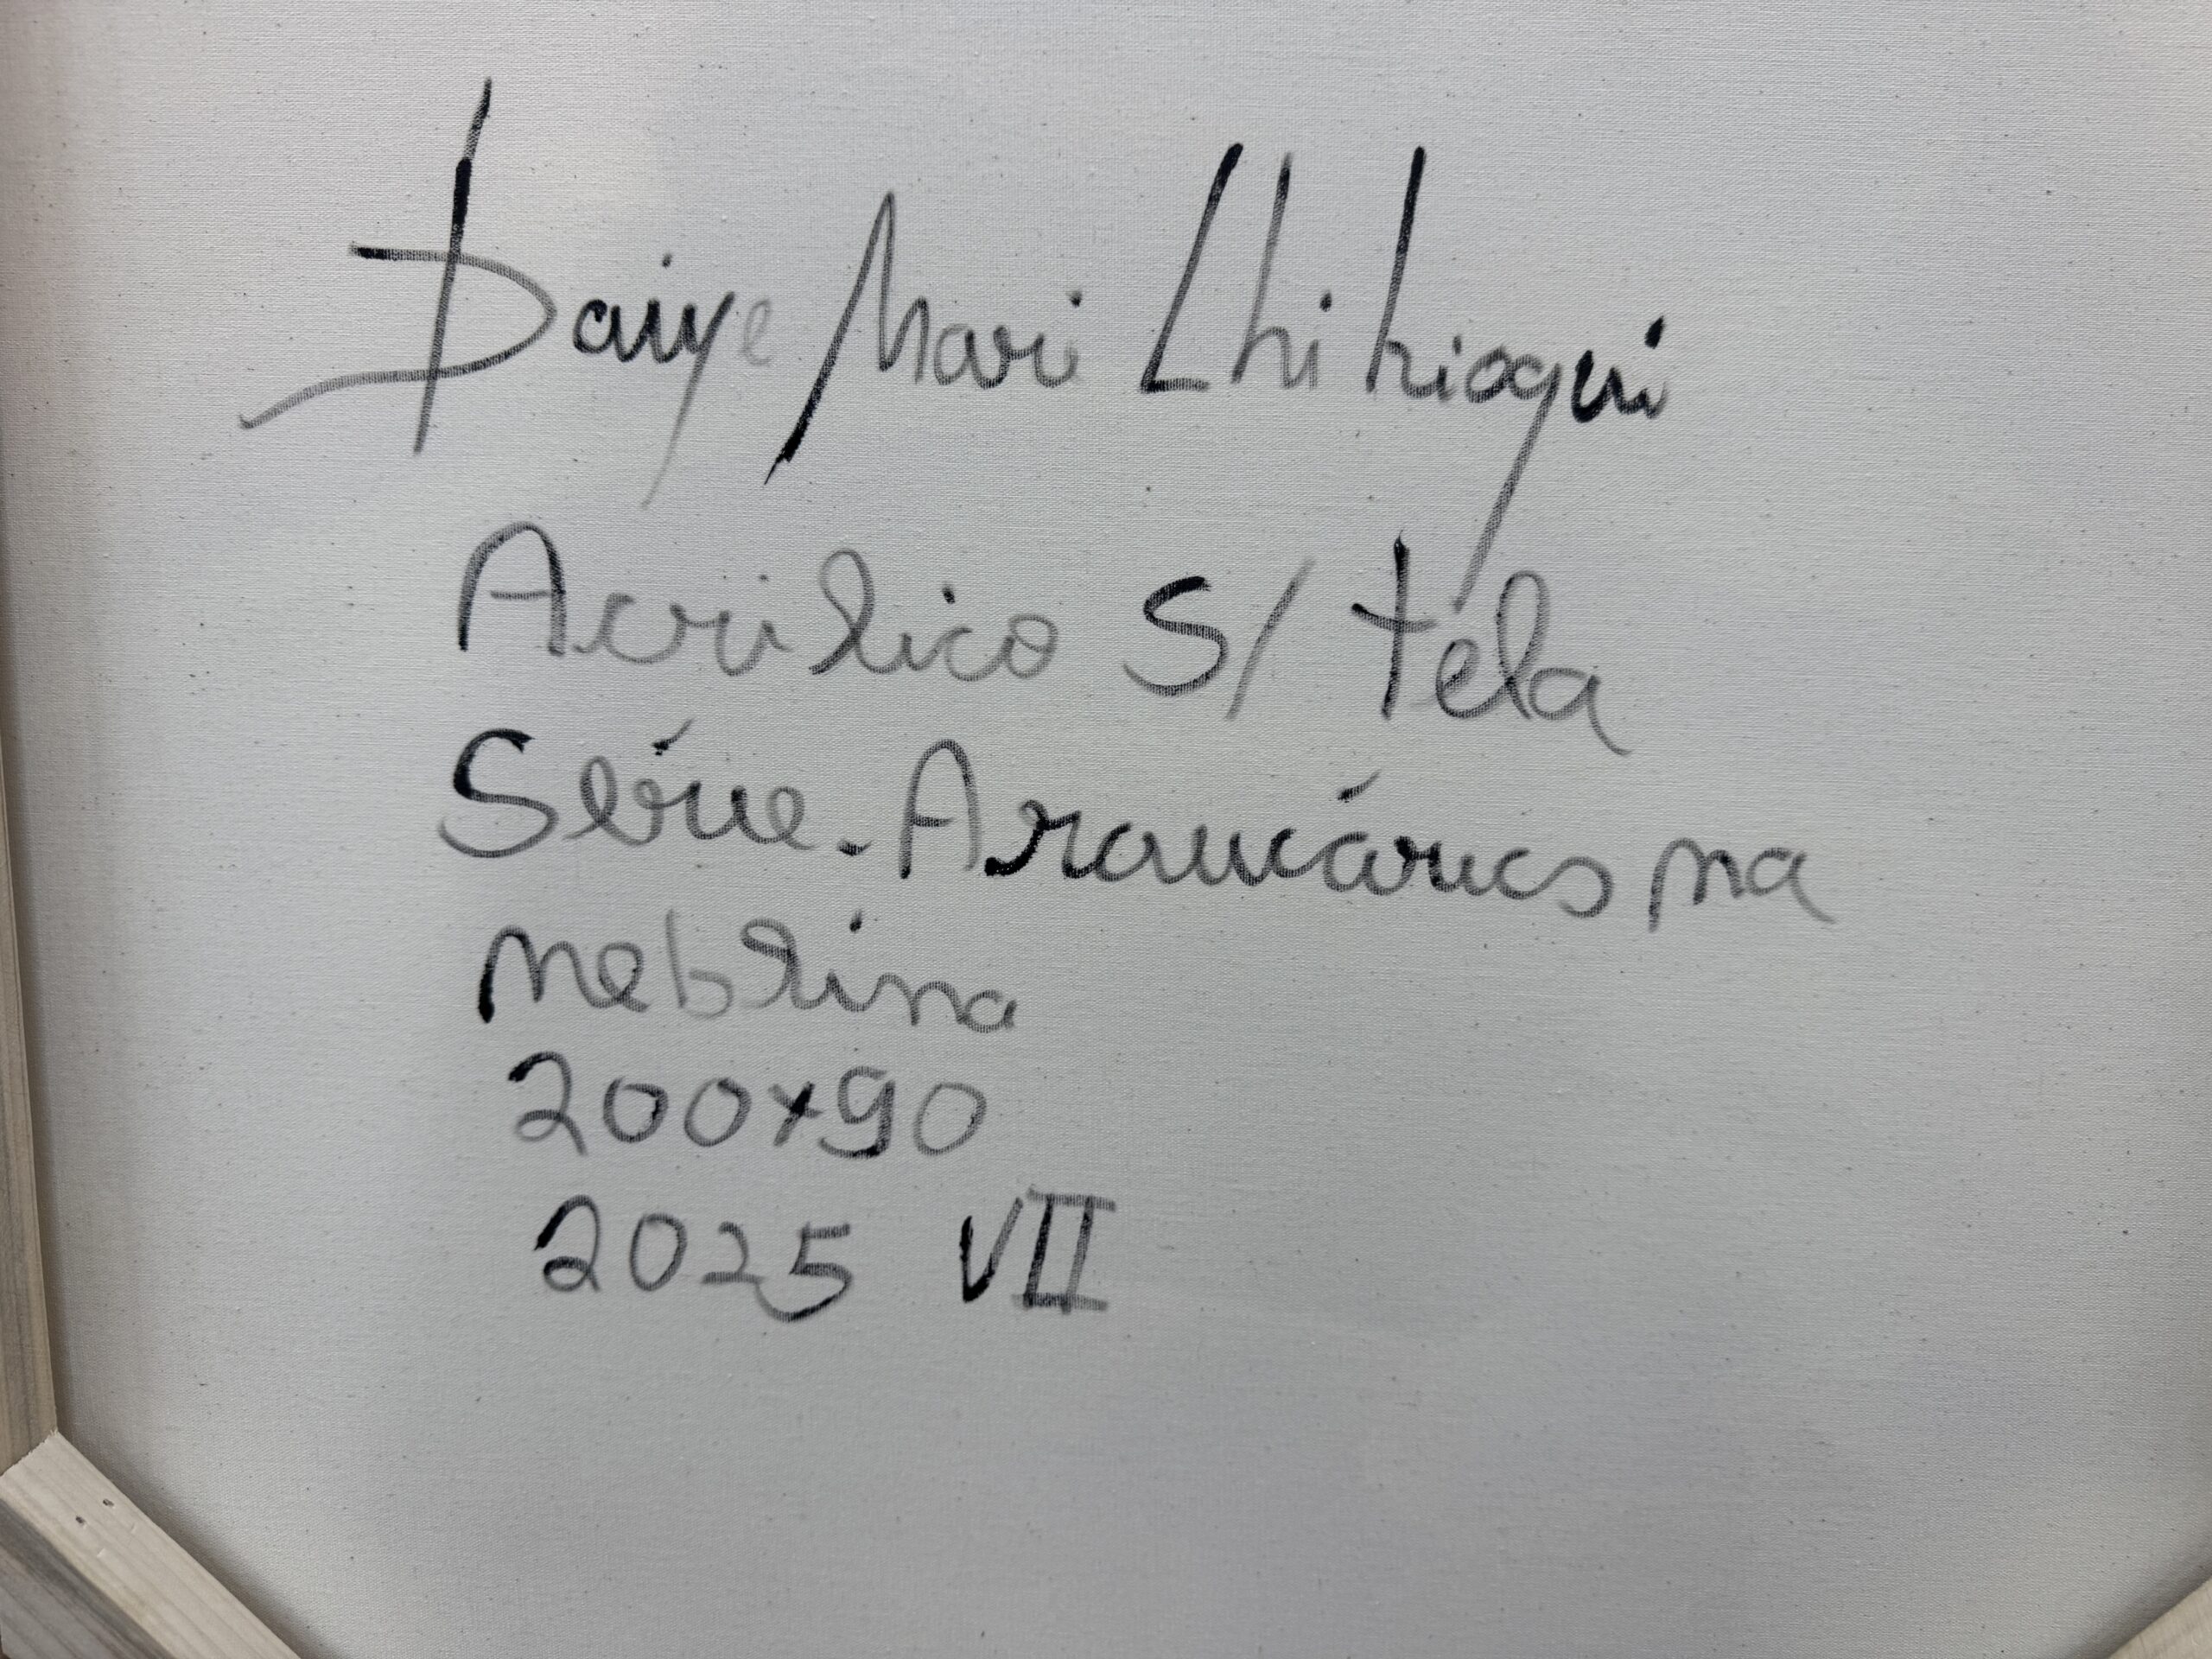 Daiye Mari Chihioqui
Acrílico S/ tela
Série. Araucárias na
neblina
200x90
2025 VII